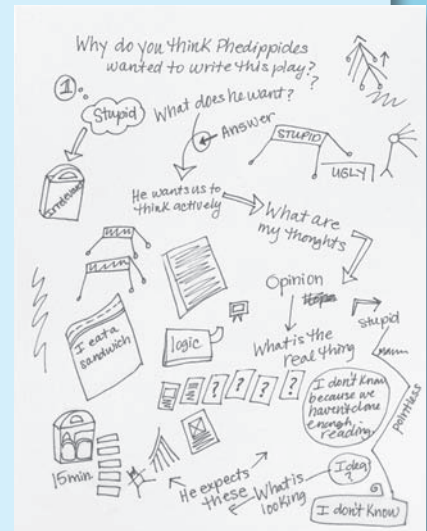 Why do you think Phedippides
wanted to write this play?
?
1
Stupid
What does he want?
Answer
STUPID
UGLY
Irrelevant
He wants us to
think actively
What are
my thoughts
Opinion
stupid
I eat a
sandwich
logic
What is the
real thing
? ? ? ? ?
I don't know
because we
haven't done
enough
reading.
pointless
15 min
He expects
these
What is
looking
Idea
?
I don't know